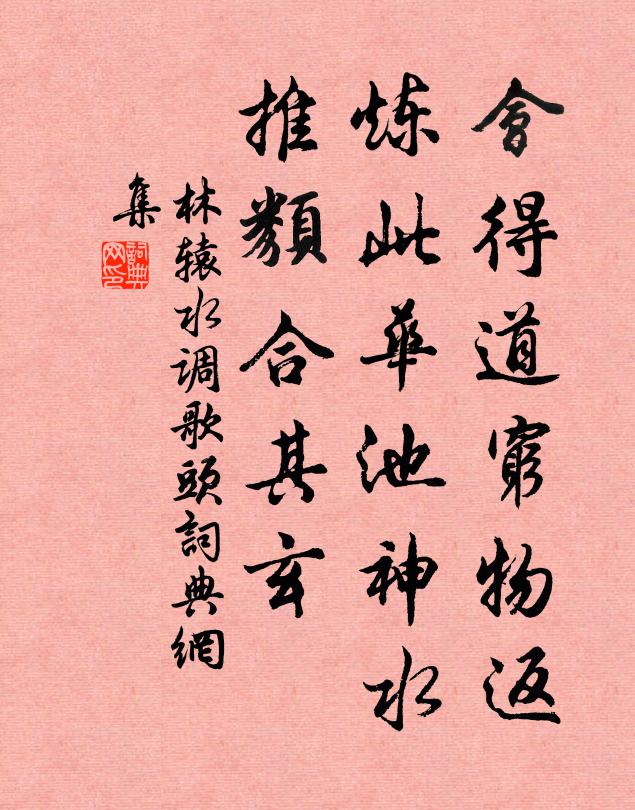 會得道窮物返
炼此華池神水
推類合其玄
林辕水调歌頭詞典網
集
詞典网印